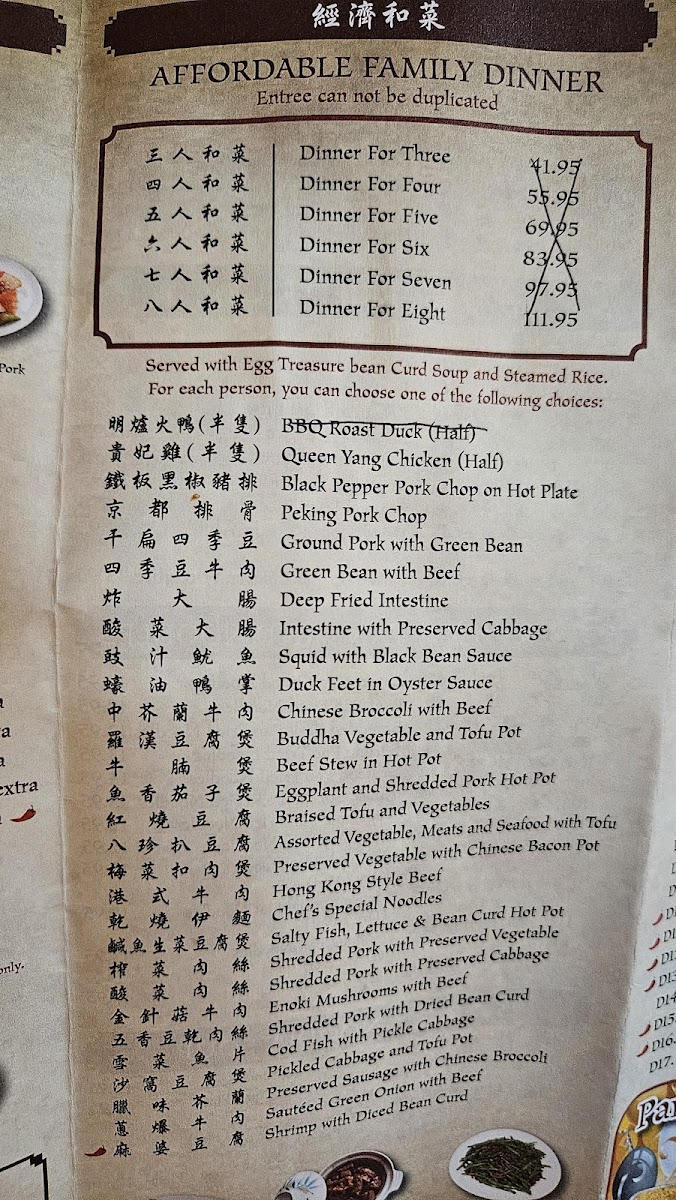 經濟和菜
AFFORDABLE FAMILY DINNER
Entree can not be duplicated
三人和菜 Dinner For Three 41.95
四人和菜 Dinner For Four 55.95
五人和菜 Dinner For Five 69.95
六人和菜 Dinner For Six 83.95
七人和菜 Dinner For Seven 97.95
八人和菜 Dinner For Eight 111.95
Served with Egg Treasure bean Curd Soup and Steamed Rice.
For each person, you can choose one of the following choices:
明爐火鴨(半隻) BBQ Roast Duck (Half)
貴妃雞(半隻) Queen Yang Chicken (Half)
鐵板黑椒豬排 Black Pepper Pork Chop on Hot Plate
京都排骨 Peking Pork Chop
干扁四季豆 Ground Pork with Green Bean
四季豆牛肉 Green Bean with Beef
炸大腸 Deep Fried Intestine
酸菜大腸 Intestine with Preserved Cabbage
豉汁魷魚 Squid with Black Bean Sauce
蠔油鴨掌 Duck Feet in Oyster Sauce
中芥蘭牛肉 Chinese Broccoli with Beef
羅漢豆腐煲 Buddha Vegetable and Tofu Pot
牛腩煲 Beef Stew in Hot Pot
魚香茄子煲 Eggplant and Shredded Pork Hot Pot
紅燒豆腐 Braised Tofu and Vegetables
八珍扒豆腐 Assorted Vegetable, Meats and Seafood with Tofu
梅菜扣肉煲 Preserved Vegetable with Chinese Bacon Pot
港式牛肉 Hong Kong Style Beef
乾燒伊麵 Chef's Special Noodles
鹹魚生菜豆腐煲 Salty Fish, Lettuce & Bean Curd Hot Pot
榨菜肉絲 Shredded Pork with Preserved Vegetable
酸菜肉絲 Shredded Pork with Preserved Cabbage
金針菇牛肉 Enoki Mushrooms with Beef
五香豆乾肉絲 Shredded Pork with Dried Bean Curd
雪菜魚片 Cod Fish with Pickle Cabbage
沙窩豆腐煲 Pickled Cabbage and Tofu Pot
臘味芥蘭 Preserved Sausage with Chinese Broccoli
蔥爆牛肉 Sautéed Green Onion with Beef
麻婆豆腐 Shrimp with Diced Bean Curd
Pork
extra
only.
D14
D15.
D16.
D17.